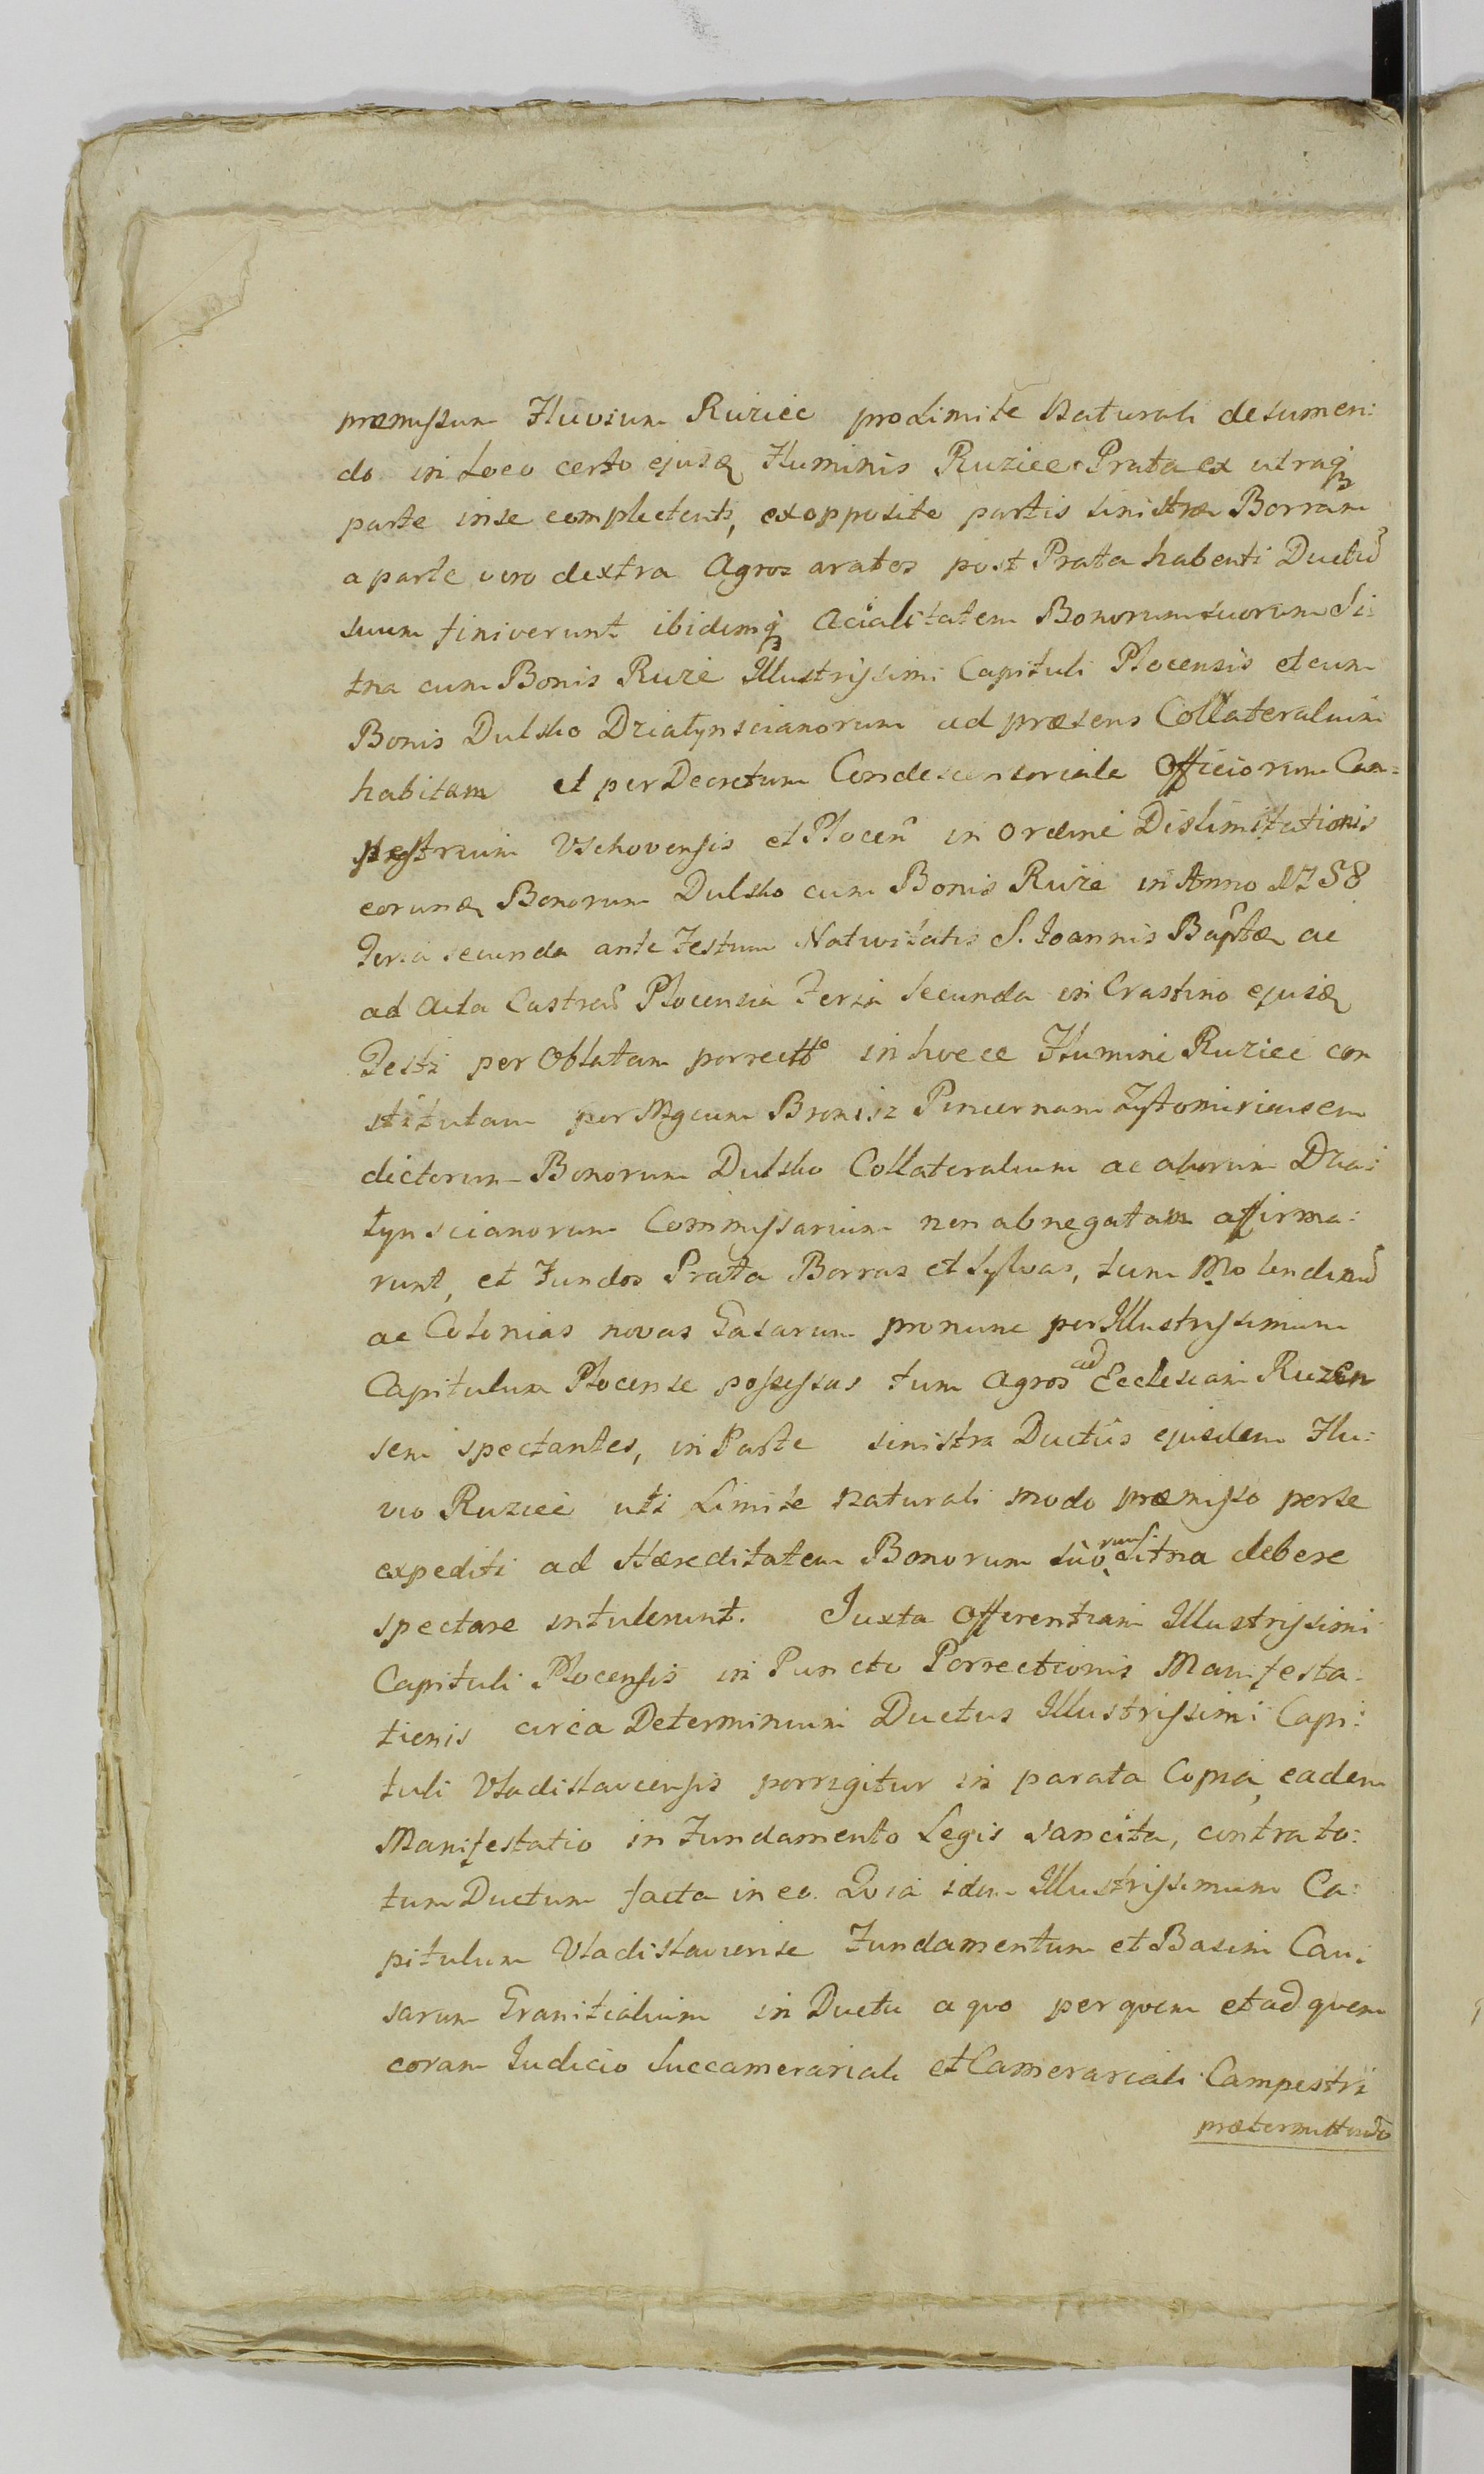 præmissum Fluvium Ruziec pro Limite Naturali desumen:
do in Loco certo ejusdq Fluminis Ruziec Prata ex utraq3
parte in se complectenti, ex opposito partis sinistræ Borram
a parte vero dextra Agros aratos post Prata habenti Ductu
suum finiverunt ibidemq3 Acialitatem Bonorum suorum Si:
tna cum Bonis Ruże Illustrissimi Capituli Plocensis et cum
Bonis Dulsko Działynscianorum ad præsens Collateralium
habitam et per Decretum Condescensoriale Officiorum Can=
strium Vschovensis et Plocen in ordine Dislimitationis
eorundq Bonorum Dulsko cum Bonis Ruże in Anno 1758
Feria secunda ante Festum Nativitatis S. Joannis Baptæ ac
ad Acta Castren Plocensia Feria Secunda in Crastino ejusdq
Festi per Oblatam porrecto in hocce Flumine Ruziec con
stitutam per Mgcum Bronisz Pincernam Zytomiriensem
dictorum Bonorum Dulsko Collateralium ac aliorum Dzia:
łynscianorum Commissarium non abnegatam affirma:
runt, et Fundos Prata Borras et Sylvas, tum Molendinu
ac Colonias novas Gasarum pronunc per Illustrissimum
Capitulum Plocense possessas tum Agros ad Ecclesiam Ruzen
sem spectantes, in Parte sinistra Ductûs ejusdem Flu:
vio Ruziec uti Limite Naturali modo præmisso per se
expediti ad Hæreditatem Bonorum suorum Sitna debere
spectare intulerunt. Juxta Offerentiam Illustrissimi
Capituli Plocensis in Puncto Porrectionis Manifesta:
tionis circa Determinium Ductus Illustrissimi Capi:
tuli Vladislaviensis porrigitur in parata Copia, eadem
Manifestatio in Fundamento Legis sancita, contra to:
tum Ductum facta in eo. Qvia idem Illustrissimum Ca:
pitulum Vladislaviense Fundamentum et Basim Cau:
sarum Granitialium in Ductu a qvo per qvem et ad qvem
coram Judicio Succamerariali et Camerariali Campestri
prætermittendo